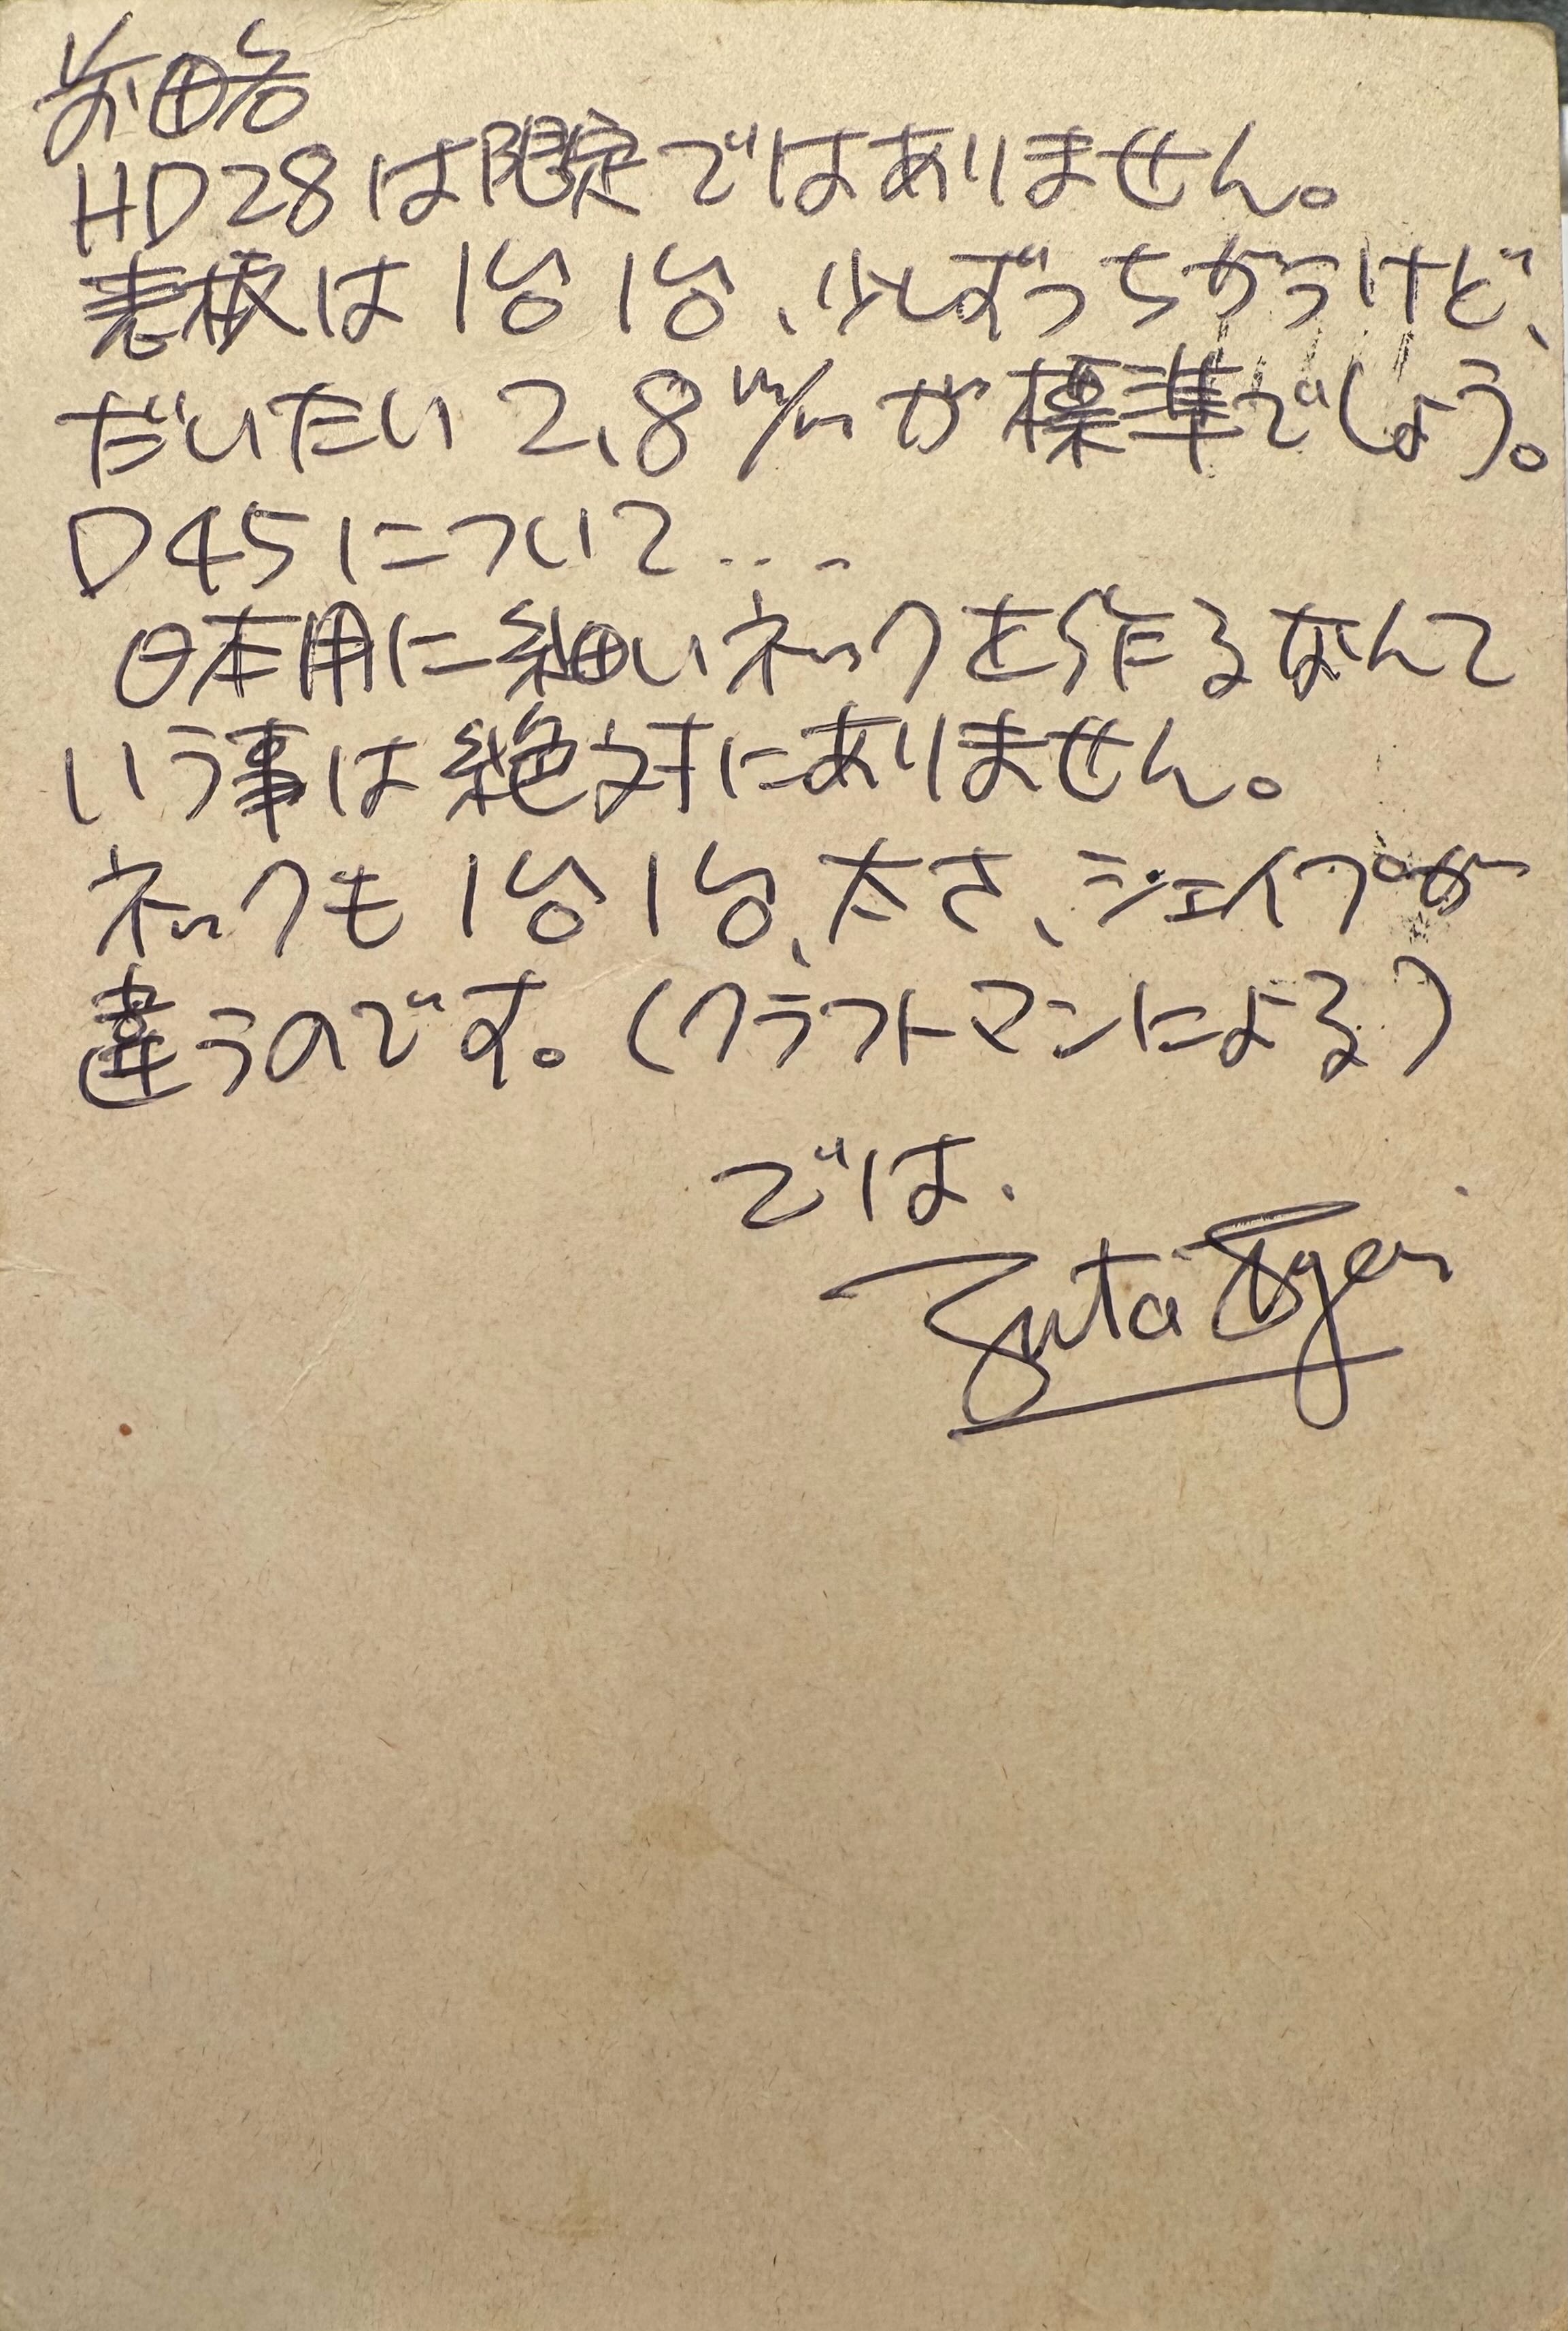 前略
HD28は限定ではありません。
表板は1台1台、少しずつちがうけど、
だいたい2.8m/mが標準でしょう。
D45について...
日本用に細いネックを作るなんて
いう事は絶対にありません。
ネックも1台1台、太さ、シェイプが
違うのです。(クラフトマンによる)
では、